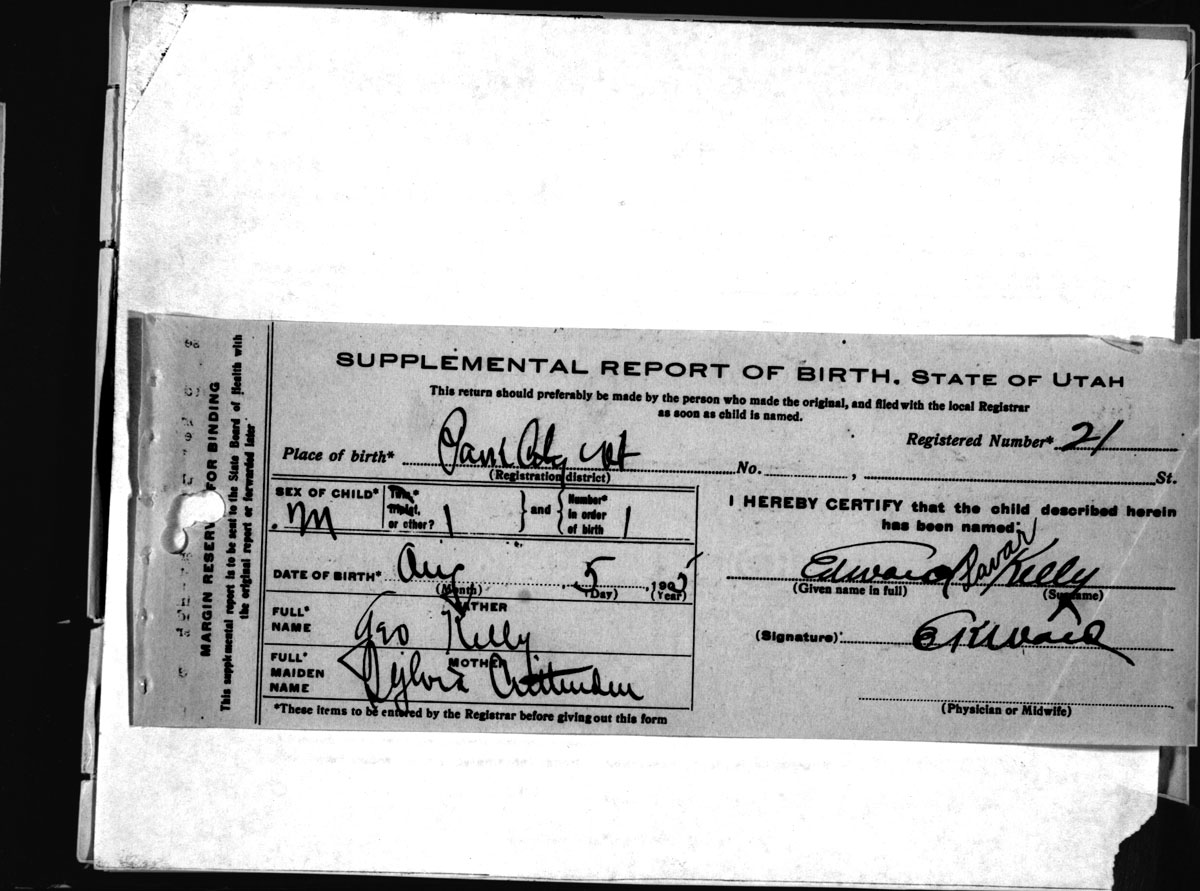 SUPPLEMENTAL REPORT OF BIRTH. STATE OF UTAH
This return should preferably be made by the person who made the original, and filed with the local Registrar
as soon as child is named.
Registered Number* 21
Place of birth* Park City Ut No. , St.
(Registration district)
SEX OF CHILD* M Twin,* Triplet, or other? 1 } and { Number* in order of birth 1
DATE OF BIRTH* Aug 5 190
(Month) (Day) (Year)
FULL* NAME FATHER Geo Kelly
FULL* MAIDEN NAME MOTHER Sylvia Chittenden
*These items to be entered by the Registrar before giving out this form
I HEREBY CERTIFY that the child described herein
has been named:
Edward Kelly
(Given name in full) (Surname)
(Signature)
(Physician or Midwife)
MARGIN RESERVED FOR BINDING
This supplemental report is to be sent to the State Board of Health with
the original report or forwarded later